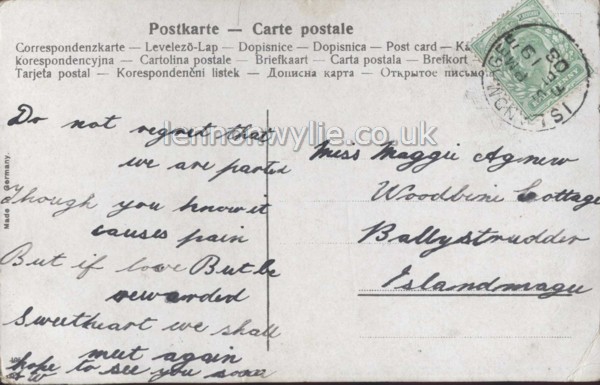 Postkarte — Carte postale
Correspondenzkarte — Levelező-Lap — Dopisnice — Dopisnica — Post card —
korespondencyjna — Cartolina postale — Briefkaart — Carta postala — Brefkort
Tarjeta postal — Korespondenční listek — Дописна карта — Открытое письмо
lennonwylie.co.uk
Made in Germany.
Do not regret that
we are parted
Though you know it
causes pain
But if love But be
rewarded
Sweetheart we shall
meet again
hope to see you soon
W
Miss Maggie Agnew
Woodbine Cottage
Ballystrudder
Islandmagee